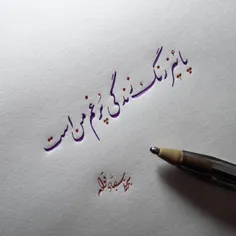 پائیز رنگ زندگی پر غم من است